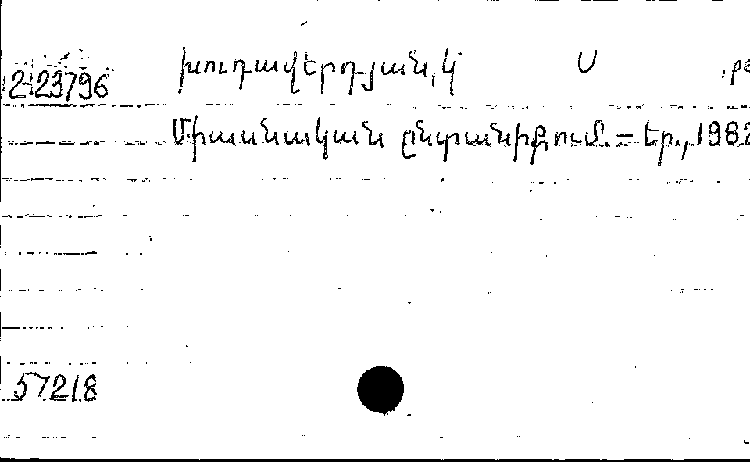 2123796 Խուդավերդյան, Կ Ս
Միասնական ընտանիքում. — Եր., 1982
57218